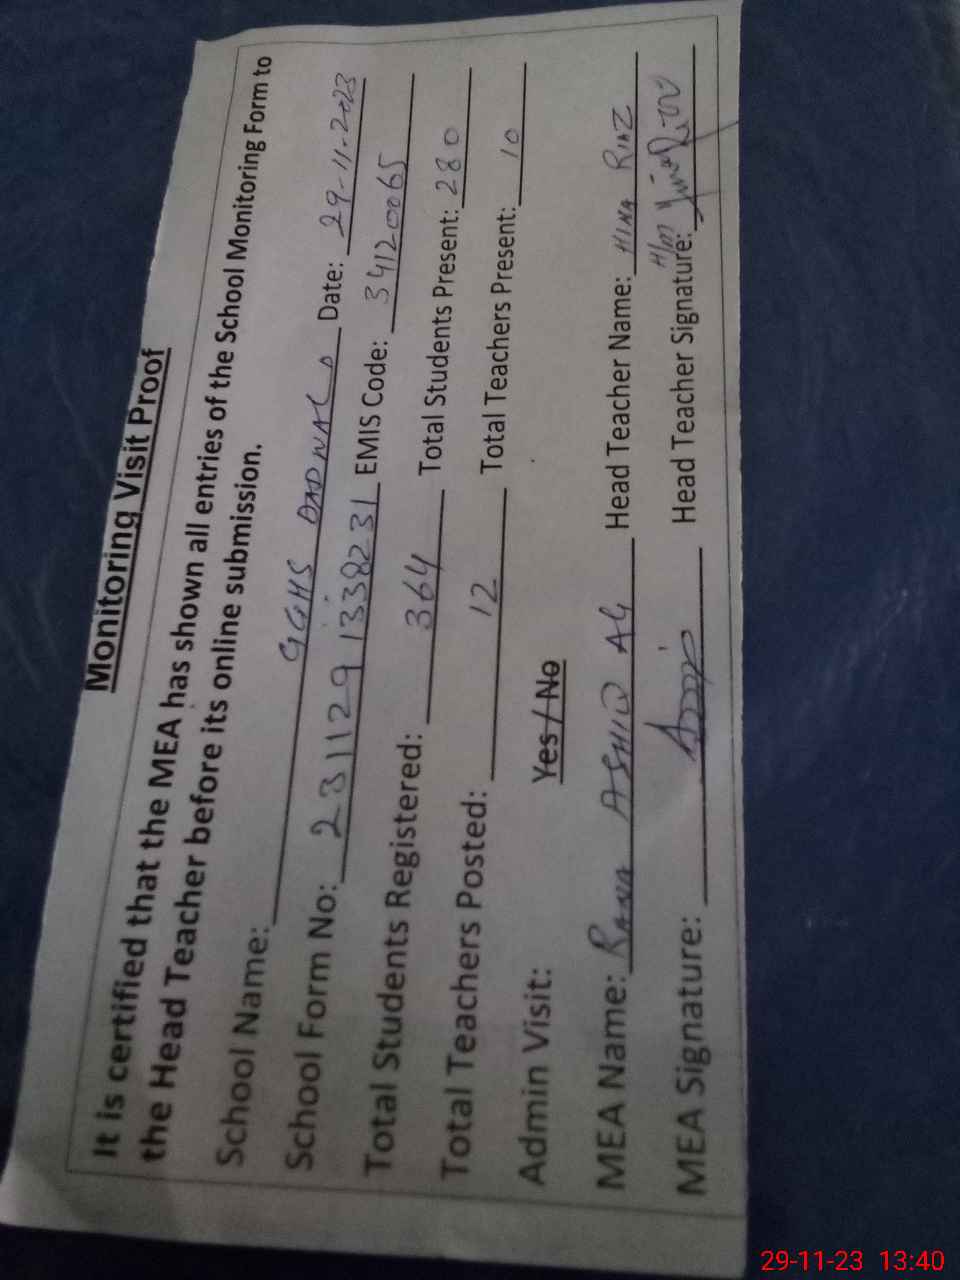 Monitoring Visit Proof
It is certified that the MEA has shown all entries of the School Monitoring Form to
the Head Teacher before its online submission.
School Name: GGHS DADWAL Date: 29-11-2023
School Form No: 2311291338231 EMIS Code: 34120065
Total Students Registered: 364 Total Students Present: 280
Total Teachers Posted: 12 Total Teachers Present: 10
Admin Visit: Yes / No
MEA Name: RANA ASHIQ ALI Head Teacher Name: HINA RIAZ
MEA Signature: Head Teacher Signature: H/M
29-11-23 13:40